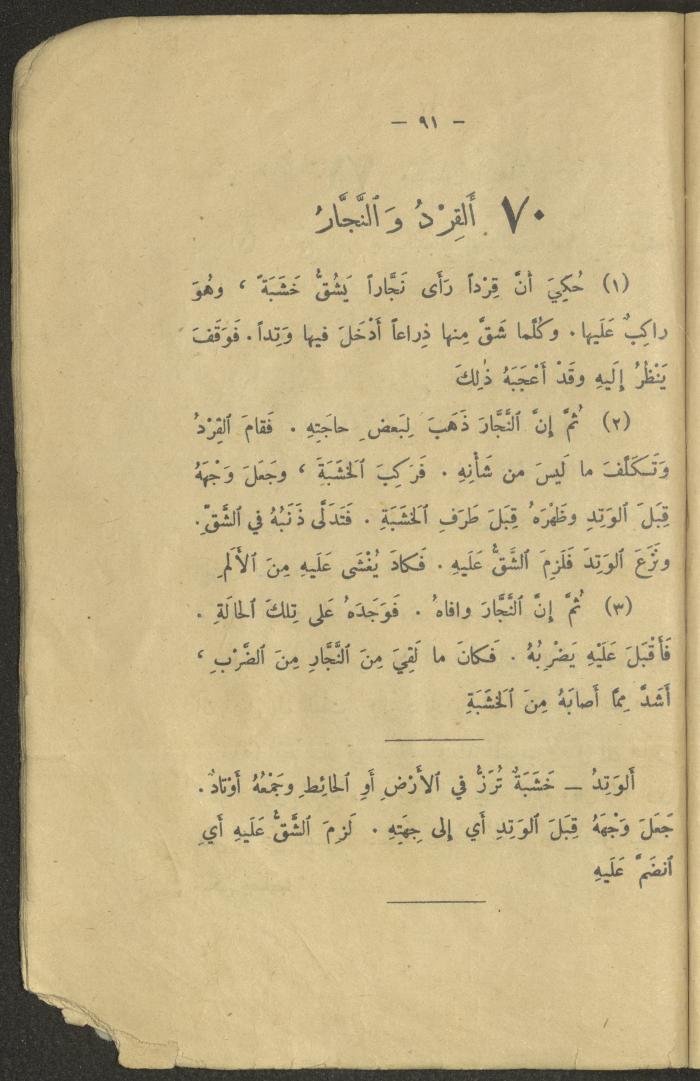 — ٩١ —
٧٠ أَلقِرْدُ وَٱلنَّجَّارُ
(١) حُكِيَ أَنَّ قِرْداً رَأَى نَجَّاراً يَشُقُّ خَشَبَةً ، وهُوَ
راكِبٌ عَلَيها . وكُلَّما شَقَّ مِنها ذِراعاً أَدْخَلَ فيها وَتِداً . فَوَقَفَ
يَنْظُرُ إِلَيهِ وقَدْ أَعْجَبَهُ ذٰلِكَ
(٢) ثُمَّ إِنَّ ٱلنَّجَّارَ ذَهَبَ لِبَعضِ حاجَتِهِ . فَقامَ ٱلقِرْدُ
وَتَكَلَّفَ ما لَيسَ من شَأْنِهِ . فَرَكِبَ ٱلخَشَبَةَ ، وجَعَلَ وَجْهَهُ
قِبَلَ ٱلوَتِدِ وظَهْرَهُ قِبَلَ طَرَفِ ٱلخَشَبَةِ . فَتَدَلَّى ذَنَبُهُ في ٱلشَّقِّ .
ونَزَعَ ٱلوَتِدَ فَلَزِمَ ٱلشَّقُّ عَلَيهِ . فَكادَ يُغْشَى عَلَيهِ مِنَ ٱلأَلَمِ
(٣) ثُمَّ إِنَّ ٱلنَّجَّارَ وافاهُ . فَوَجَدَهُ عَلى تِلكَ ٱلحالَةِ .
فَأَقْبَلَ عَلَيْهِ يَضْرِبُهُ . فَكانَ ما لَقِيَ مِنَ ٱلنَّجَّارِ مِنَ ٱلضَّرْبِ ،
أَشَدَّ مِمَّا أَصابَهُ مِنَ ٱلخَشَبَةِ
أَلوَتِدُ — خَشَبَةٌ تُرَزُّ في ٱلأَرْضِ أَوِ ٱلحائِطِ وجَمْعُهُ أَوْتادٌ .
جَعَلَ وَجْهَهُ قِبَلَ ٱلوَتِدِ أَي إِلى جِهَتِهِ . لَزِمَ ٱلشَّقُّ عَلَيهِ أَيِ
ٱنضَمَّ عَلَيهِ